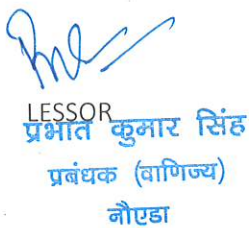 LESSOR
प्रभात कुमार सिंह
प्रबंधक (वाणिज्य)
नौएडा